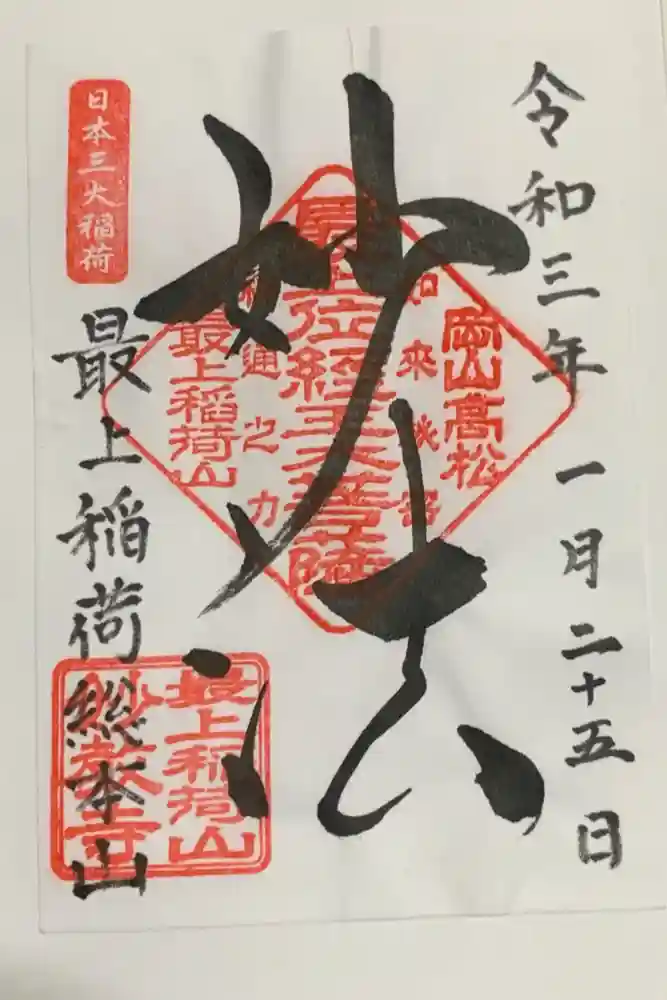 令和三年 一月二十五日
妙法
岡山高松
如来秘密
最上位経王大菩薩
神通之力
最上稲荷山
日本三大稲荷
最上稲荷総本山
最上稲荷山
妙教寺